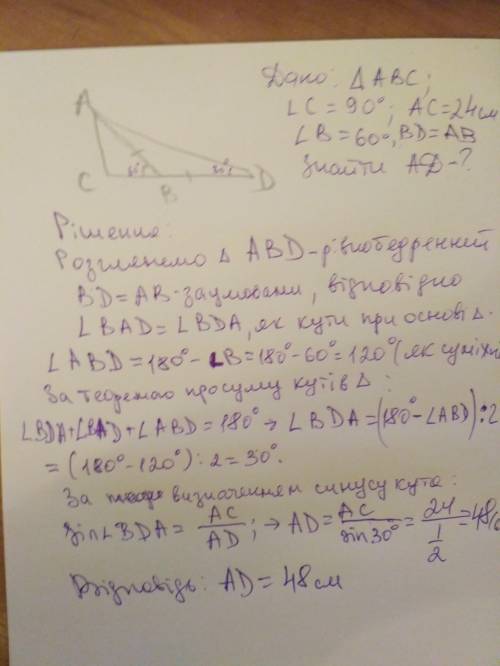 Дано: △ABC;
∠C = 90°; AC=24см
∠B = 60°, BD = AB
Знайти AD-?
A
C
B
30°
D
Рішення:
Розглянемо △ ABD - рівнобедренний
BD = AB - за умовами, відповідно
∠BAD = ∠BDA, як кути при основі △.
∠ABD = 180° - ∠B = 180° - 60° = 120° (як суміжні
За теоремою про суму кутів △ :
∠BDA + ∠BAD + ∠ABD = 180° → ∠BDA = (180° - ∠ABD) : 2
= (180° - 120°) : 2 = 30°.
За визначенням синусу кута :
sin∠BDA = AC/AD ; → AD = AC/sin30° = 24/(1/2) = 48(с
Відповідь: AD = 48 см